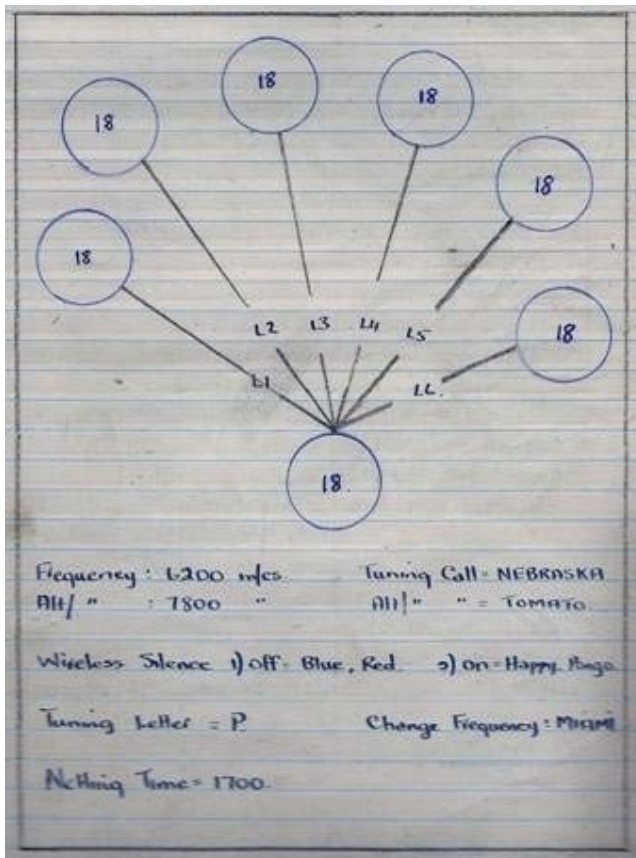 18
18
18
18
18
18
L2 L3 L4 L5
L1
L6.
18.
Frequency: 6200 m/cs. Tuning Call = NEBRASKA
Alt/ " : 7800 " Alt/ " " = TOMATO.
Wireless Silence 1) off = Blue, Red. 2) on = Happy,
Tuning Letter = P. Change Frequency: MIAMI
Netting Time = 1700.